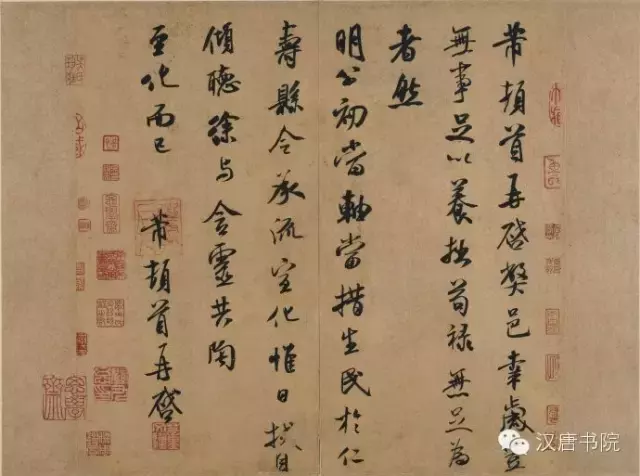 芾頓首再啓弊邑幸歲豐
無事足以養拙苟禄無足爲
者然
明公初當軸當措生民於仁
壽縣令承流宣化惟日拭目
傾聽徐與含靈共陶
至化而已
芾頓首再啓
汉唐书院